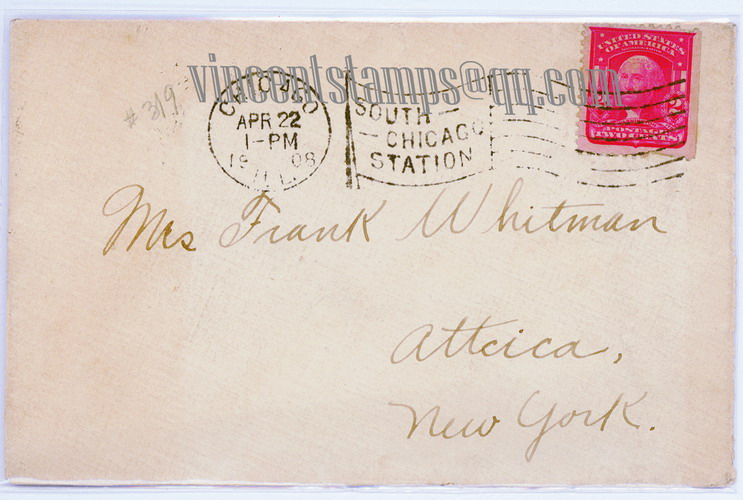 UNITED STATES
OF AMERICA
vincentstamps@qq.com
# 319
CHICAGO
APR 22
1-PM
19 08
ILL.
SOUTH
CHICAGO
STATION
2
POSTAGE
TWO CENTS
Mrs Frank Whitman
Atteica,
New York.